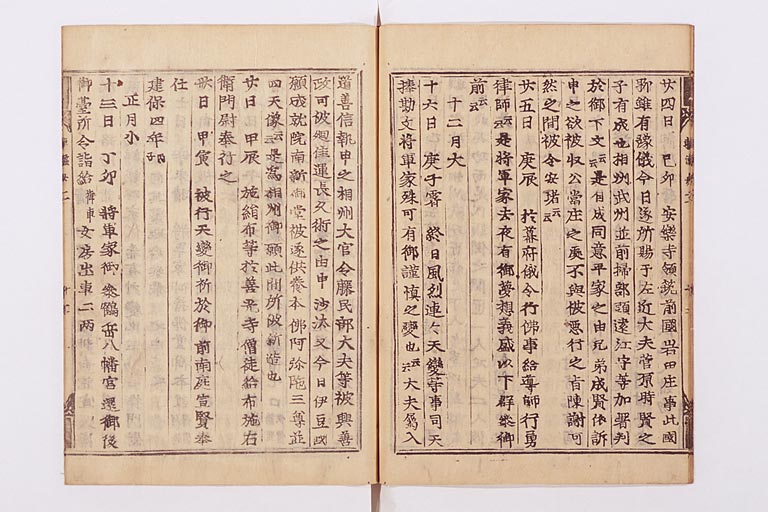 廿四日 己卯 安樂寺領筑前國岩田庄事此國
弥雖有豫儀今日遂所賜于左近大夫菅原時賢之
子有成也相州武州並前掃部頭遠江守等加署判
於御下文云云是有成同意平家之由兄弟成賢依訴
申之欲被収公當庄之處不與彼惡行之旨陳謝可
然之間被令安堵云云
廿五日 庚辰 於幕府俄令行佛事給導師行勇
律師云云是將軍家去夜有御夢想義盛以下群參御
前云云
十二月大
十六日 庚子霽 終日風烈連々天變等事司天
捧勘文將軍家殊可有御謹慎之變也云云大夫属入
道善信執申之相州大官令藤民部大夫等被興善
政可被廻佳運長久術之由申沙汰又今日伊豆國
願成就院南新御堂被遂供養本佛阿弥陁三尊並
四天像云云是為相州御願此間所被新造也
廿日 甲辰 施絹布等於善光寺僧徒給布施右
衛門尉奉行之
卅日 甲寅 被行天變御祈於御前南庭宣賢奉
仕
建保四年丙子
正月小
十三日 丁卯 將軍家御參鶴岳八幡宮還御後
御臺所令詣給御車女房出車二両